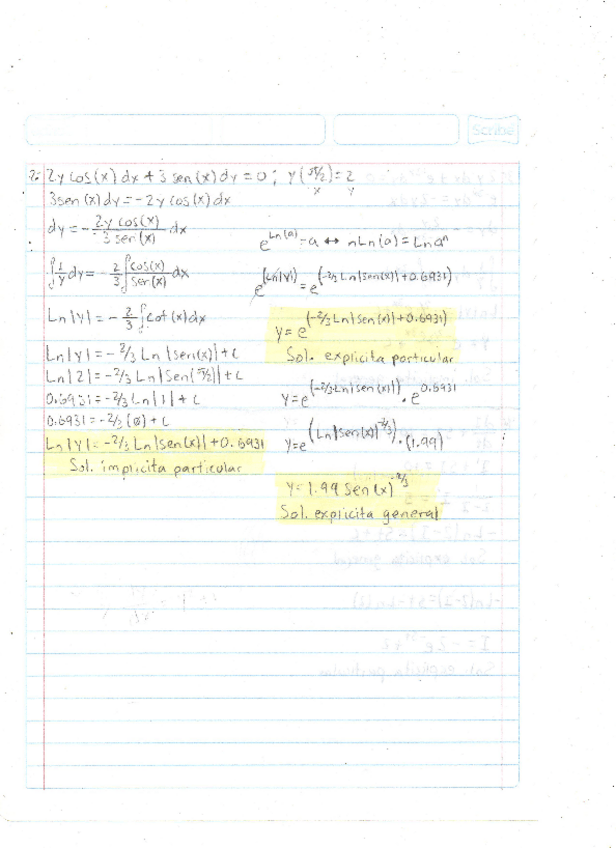 Scribe
2: 2y cos(x) dx + 3 sen(x) dy = 0; y(π/2) = 2
x y
3sen(x) dy = -2y cos(x) dx
dy = - 2y cos(x) / 3 sen(x) dx
∫ 1/y dy = - 2/3 ∫ cos(x)/sen(x) dx
Ln|y| = - 2/3 ∫ cot(x) dx
Ln|y| = -2/3 Ln|sen(x)| + c
Ln|2| = -2/3 Ln|Sen(π/2)| + c
0.6931 = -2/3 Ln|1| + c
0.6931 = -2/3 (0) + c
Ln|y| = -2/3 Ln|sen(x)| + 0.6931
Sol. implicita particular
e^Ln(a) = a ↔ nLn(a) = Ln a^n
e^(Ln|y|) = e^(-2/3 Ln|sen(x)| + 0.6931)
y = e^(-2/3 Ln|sen(x)| + 0.6931)
Sol. explicita particular
y = e^(-2/3 Ln|sen(x)|) · e^0.6931
y = e^(Ln|sen(x)|^-2/3) · (1.99)
y = 1.99 Sen(x)^-2/3
Sol. explicita general